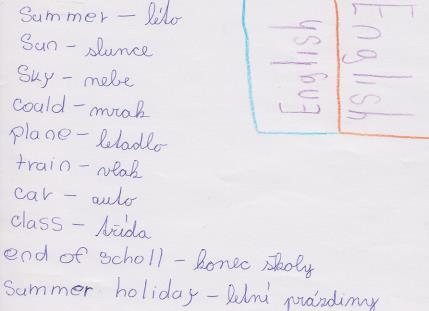 Summer – léto
Sun – slunce
Sky – nebe
coald – mrak
plane – letadlo
train – vlak
car – auto
class – třída
end of scholl – konec školy
Summer holiday – letní prázdiny
English
English